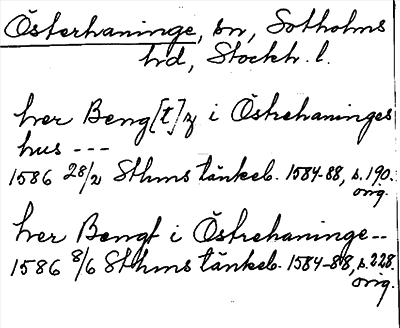 Österhaninge, sn, Sotholms
hd, Stockh. l.
her Beng[t]z i Östrehaninges
hus ---
1586 28/2 Sthms tänkeb. 1584-88, s. 190.
orig.
her Bengt i Östrehaninge--
1586 8/6 Sthms tänkeb. 1584-88, s. 228.
orig.